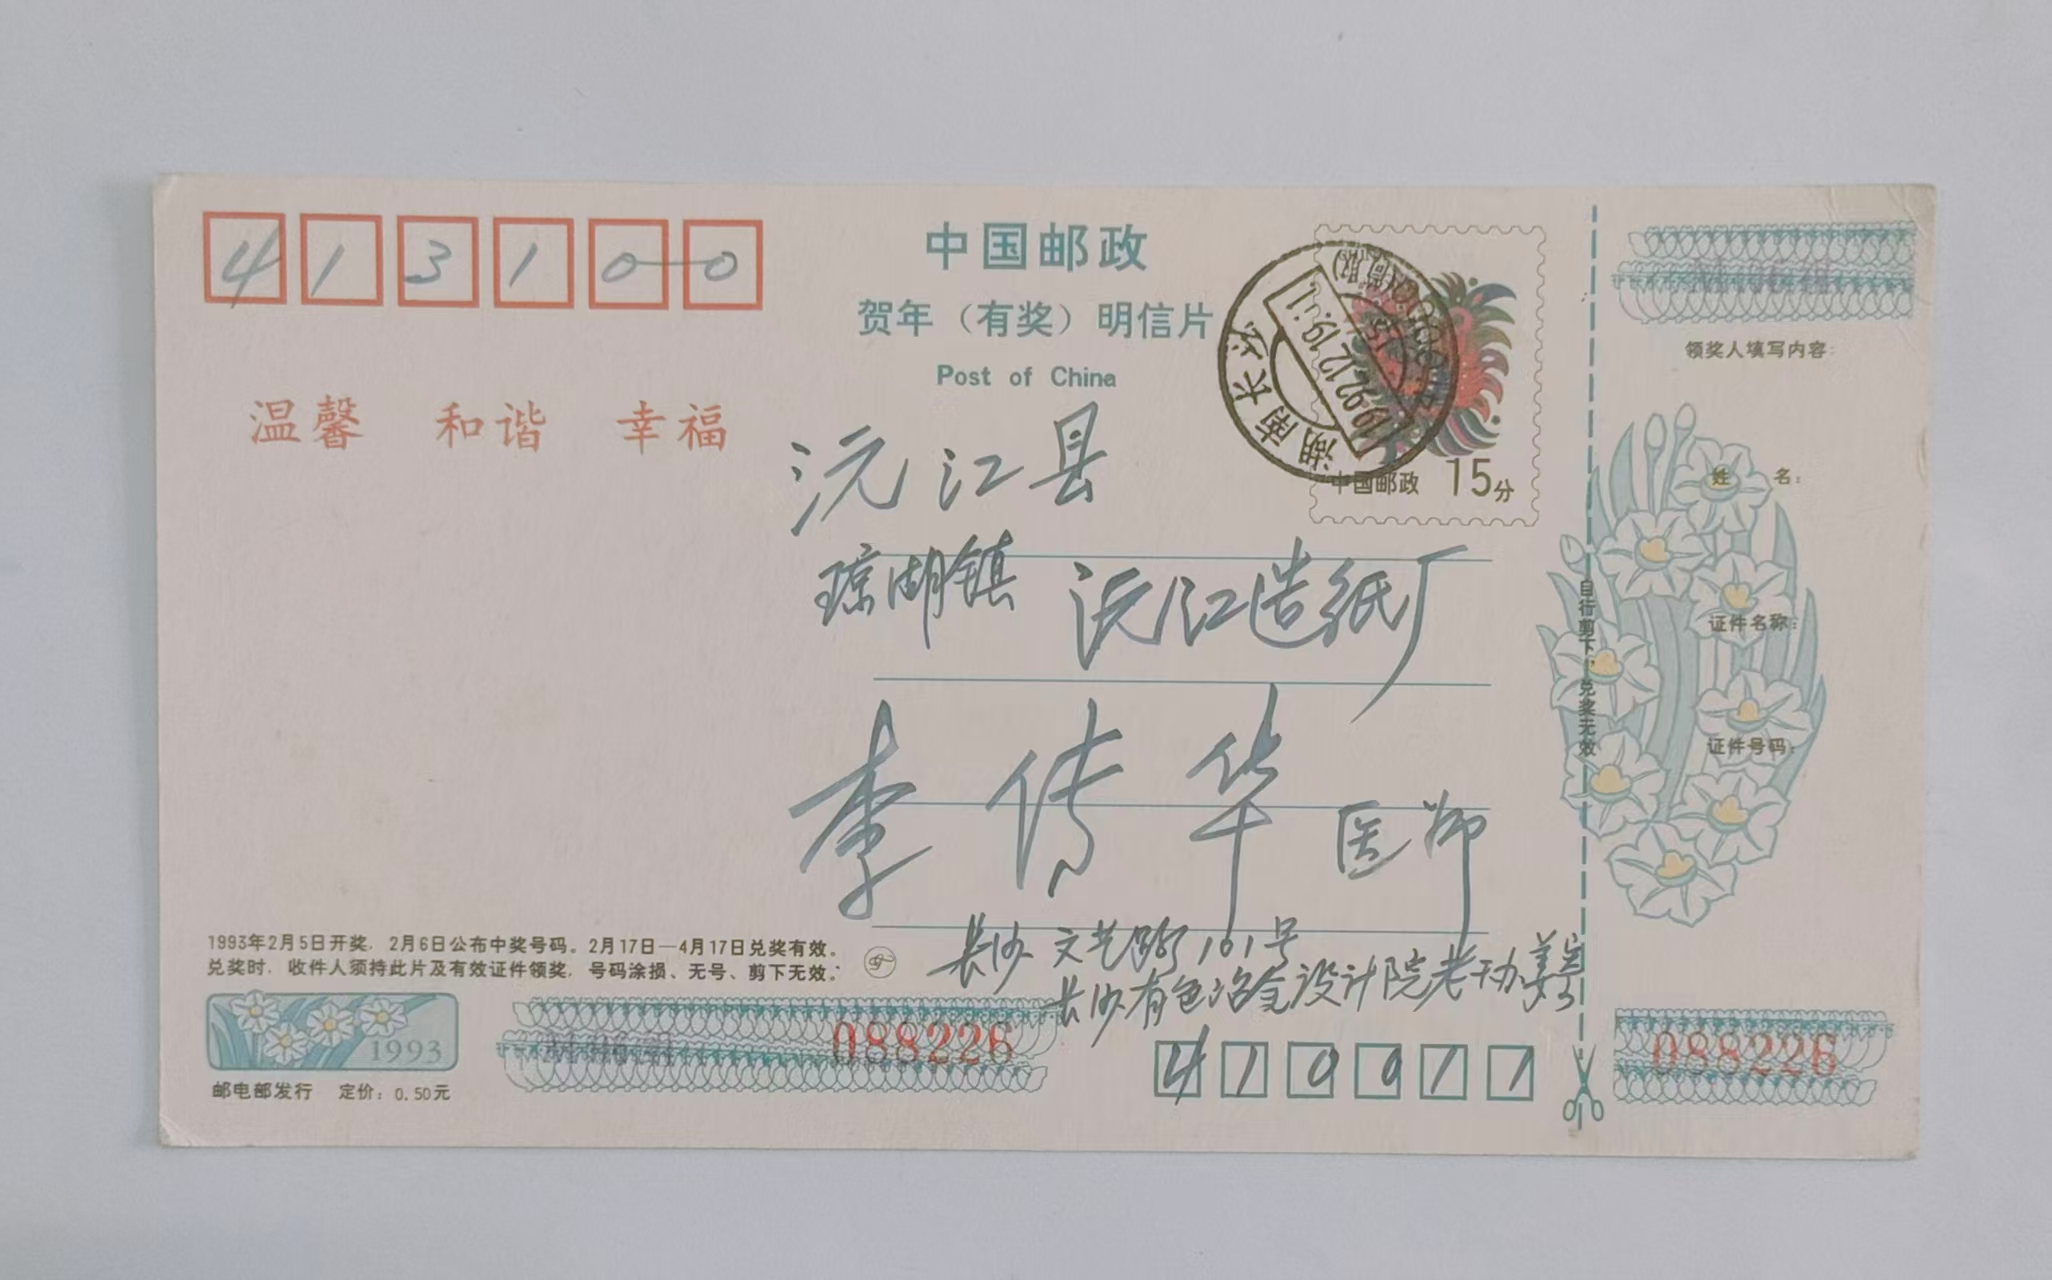 413100
中国邮政
贺年（有奖）明信片
Post of China
温馨 和谐 幸福
湖南长沙
1992.12.19.11
中国邮政 15分
沅江县
琼湖镇 沅江造纸厂
李传华 医师
长沙 文艺路101号
长沙有色冶金设计院老干办姜
410011
1993年2月5日开奖．2月6日公布中奖号码。2月17日—4月17日兑奖有效。
兑奖时，收件人须持此片及有效证件领奖，号码涂损、无号、剪下无效。
1993
088226
邮电部发行 定价：0.50元
自行剪下 兑奖无效
领奖人填写内容：
姓 名：
证件名称：
证件号码：
088226